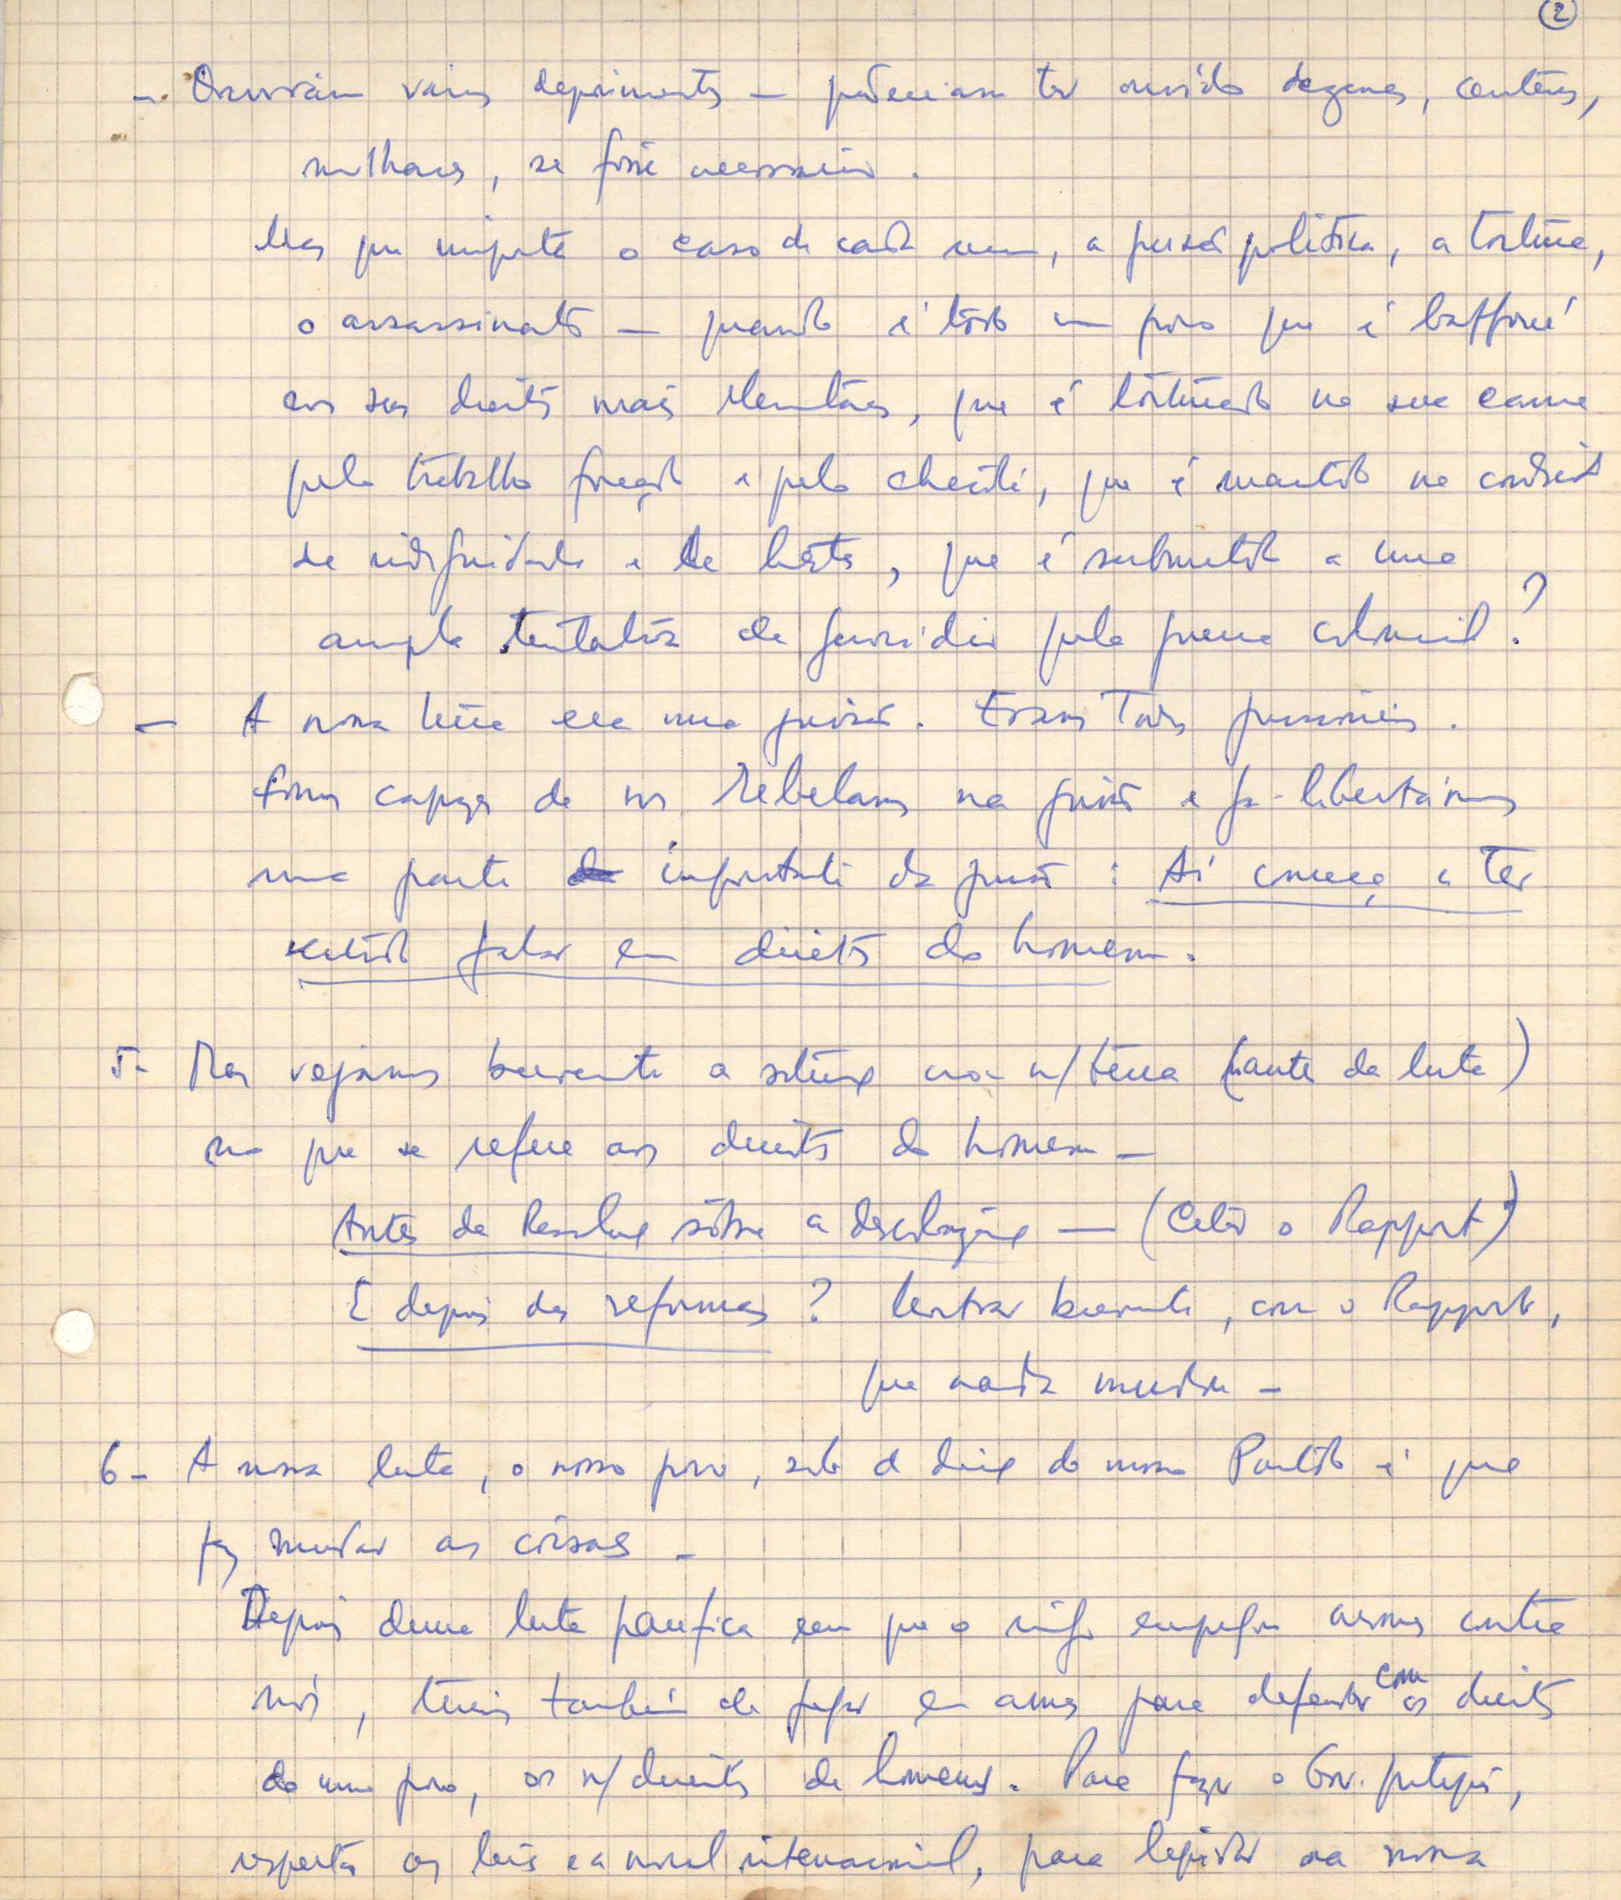 2
- Ouviram vários depoimentos - poderiam ter ouvido dezenas, centenas,
milhares, se fosse necessário.
Mas que importa o caso de cada um, a prisão política, a tortura,
o assassinato — quando é todo um povo que é bafoué
nos seus direitos mais elementares, que é torturado na sua carne
pelo trabalho forçado e pela chicote, que é mantido na condição
de indignidade e de besta, que é submetido a uma
ampla tentativa de genocídio pela guerra colonial?
- A nossa terra era uma prisão. Eramos Todos prisioneiros.
Fomos capazes de nos rebelarmos na prisão e já libertámos
uma parte importante da prisão: Aí começa a ter
sentido falar em direitos do homem.
5- Mas vejamos brevemente a situação na n/terra (antes da luta)
no que se refere aos direitos do homem -
Antes da Resolução sôbre a descolonização — (Citar o Rapport)
E depois das reformas? Mostrar brevemente, com o Rapport,
que nada mudou -
6- A nossa luta, o nosso povo, sob a direcção do nosso Partido é que
fez mudar as coisas -
Depois duma luta pacífica em que o inimigo empregou armas contra
nós, tivemos também de pegar em armas para defender com os direitos
do nosso povo, os n/direitos de homens. Para fazer o Gov. português,
respeitar as leis e a moral internacional, para legislar na nossa